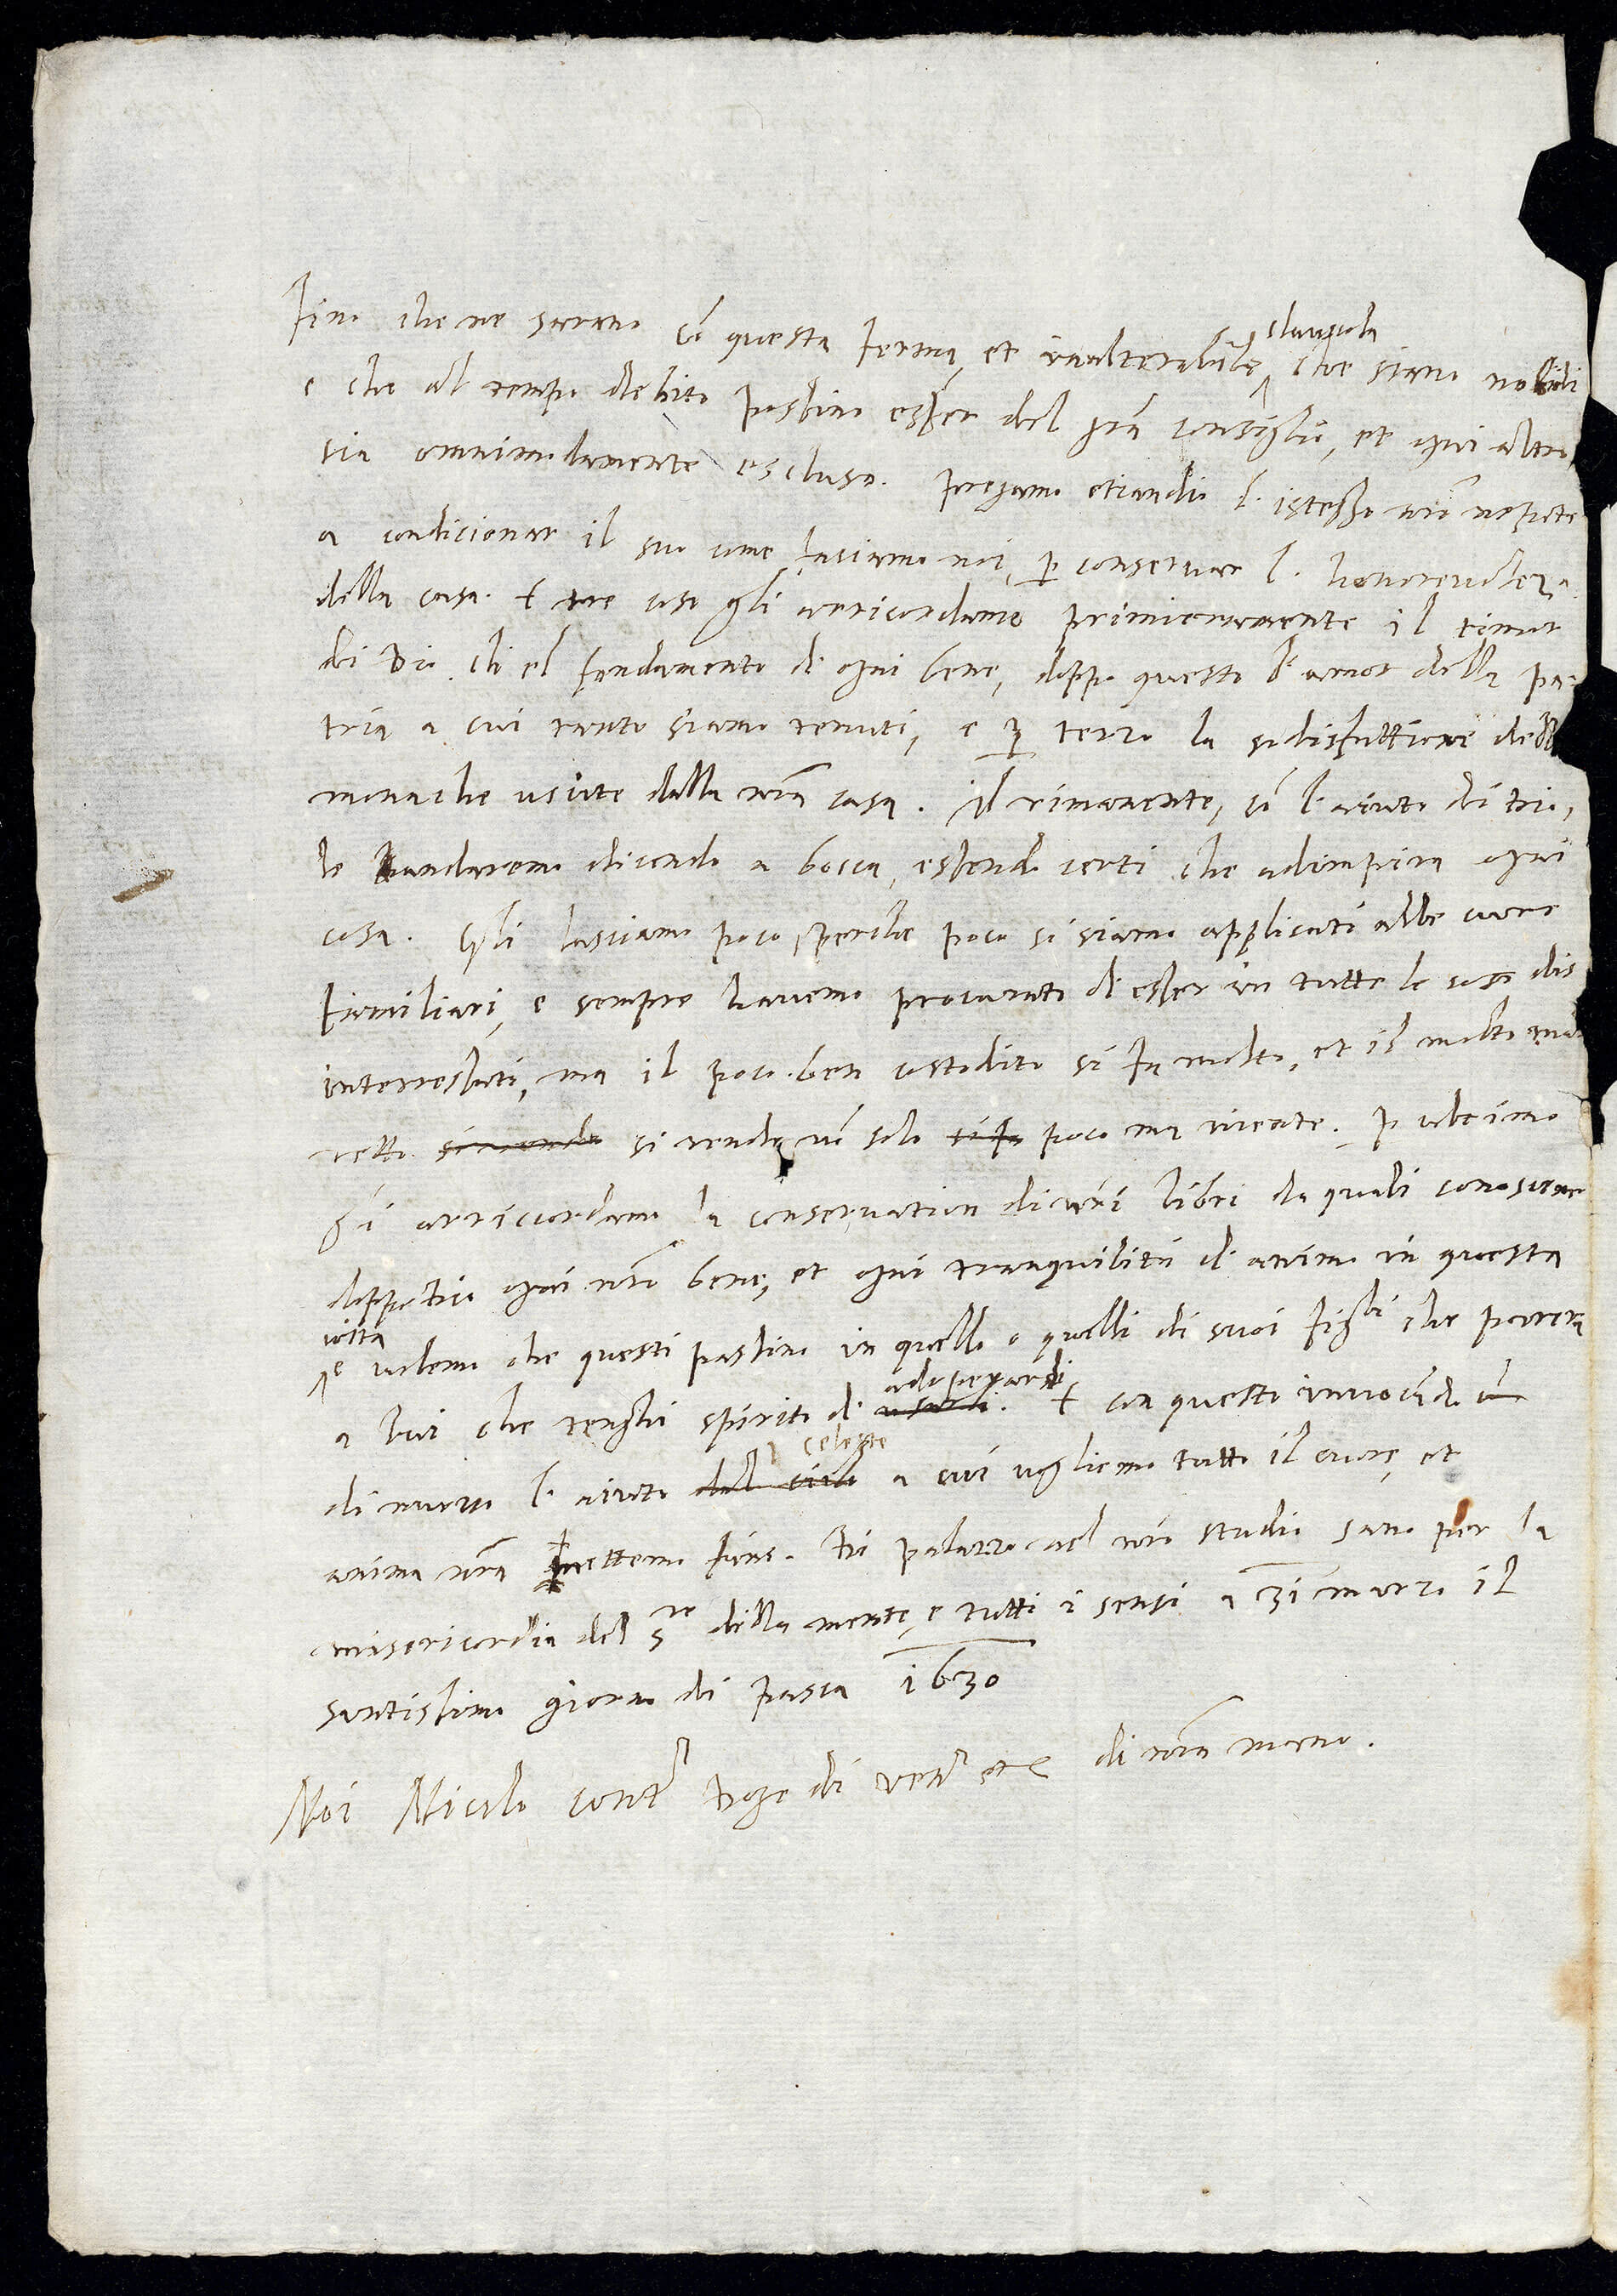 fino che ne sarano cō questa ferma, et inalterabile clausola che siano nobili
e che al tempo debito possino esser del grã consiglio, et ogni altro
sia omnimodamente escluso. pregamo etiandio l' istesso nrō nepote
a condicionar il suo come faciamo noi, p conservar l' honorevoleza
della casa. tre cose gli arricordamo primieramente il timor
di Dio ch'è 'l fondamento d' ogni bene, doppo questo l' amor della pa-
tria a cui tanto siamo tenuti, e p terzo la sodisfattione delle
monache uscite dalla nrã casa. Il rimanente, cō l' aiuto di Dio,
le andaremo dicendo a bocca, essendo certi che adimpira ogni
cosa. Gli lasciamo poco, perche poco si siamo applicati alle cure
familiari, e sempre havemo procurato d' esser in tutte le cose dis
interessati, ma il poco ben custodito si fa molto, et il molto mal
retto si rende nō solo poco ma niente. p ultimo
gli arricordamo la conservation di nrī libri da quali conoscemo
doppo Dio ogni nrō bene, et ogni tranquilità d' animo in questa
vitta
e volemo che questi passino in quello o quelli di suoi figli che parera
a lui che tenghi spirito d' adoperarli. E con questo invocãdo
di nuovo l' aiuto celeste a cui vogliemo tutto il cuore, et
anima nrã mettemo fine. Di palazzo nel nrō studio sano per la
misericordia del Sre della mente, e tutti i sensi a 31 marzo il
santissimo giorno di Pasca 1630
Noi Nicolo Cont Doge di Ven etc di nrã mano.